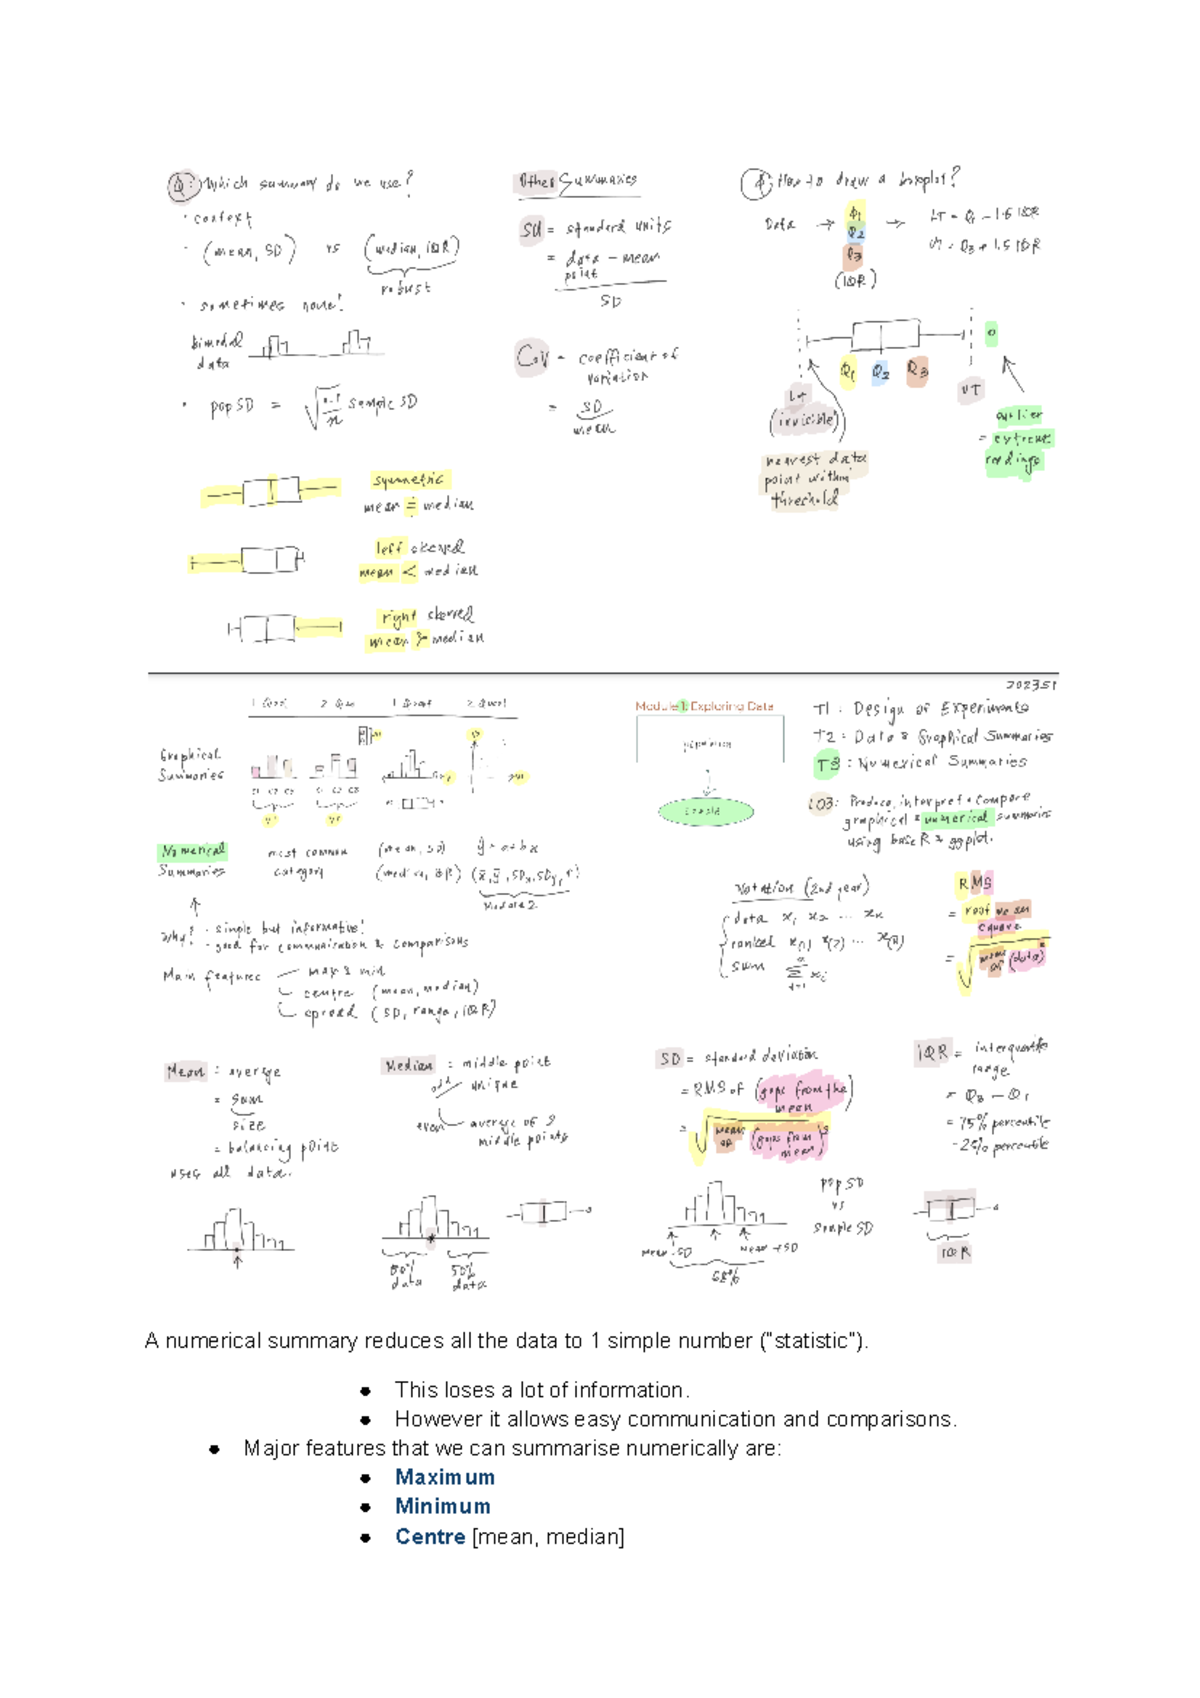 Q: Which summary do we use?
· context
· (mean, SD) vs (median, IQR)
robust
· sometimes none!
bimodal
data
· pop SD = √ n-1/n sample SD
symmetric
mean ≈ median
left skewed
mean < median
right skewed
mean > median
Other Summaries
SU = standard units
= data point − mean
SD
CoV = coefficient of
variation
= SD
mean
Q: How to draw a boxplot?
Data → Q1 → LT = Q1 − 1.5 IQR
Q2
Q3 UT = Q3 + 1.5 IQR
(IQR)
Q1 Q2 Q3
LT
(invisible)
UT
nearest data
point within
threshold
outlier
= extreme
readings
2023S1
1 Qual 2 Qual 1 Quant 2 Quant
Graphical
Summaries
C1 C2 C3 C1 C2 C3
Numerical
Summaries
most common
category
(mean, SD)
(median, IQR)
ŷ = a + bx
(x̄, ȳ, SDx, SDy, r)
Module 2
Why? · simple but informative!
· good for communication & comparisons
Main features
max & min
centre (mean, median)
spread (SD, range, IQR)
Module 1: Exploring Data
population
sample
T1 : Design of Experiments
T2 : Data & Graphical Summaries
T3 : Numerical Summaries
LO3: Produce, interpret & compare
graphical & numerical summaries
using base R & ggplot.
Notation (2nd year)
data x1 x2 ... xn
ranked x(1) x(2) ... x(n)
sum Σ xi
i=1
RMS
= root mean
square
= √ mean of (data)²
Mean : average
= sum
size
= balancing point
uses all data.
Median : middle point
odd unique
even average of 2
middle points
50%
data
50%
data
SD = standard deviation
= RMS of (gaps from the
mean)
= √ mean of (gaps from mean)²
mean-SD mean+SD
68%
pop SD
vs
sample SD
IQR = interquartile
range
= Q3 − Q1
= 75% percentile
- 25% percentile
IQR
A numerical summary reduces all the data to 1 simple number ("statistic").
● This loses a lot of information.
● However it allows easy communication and comparisons.
● Major features that we can summarise numerically are:
● Maximum
● Minimum
● Centre [mean, median]